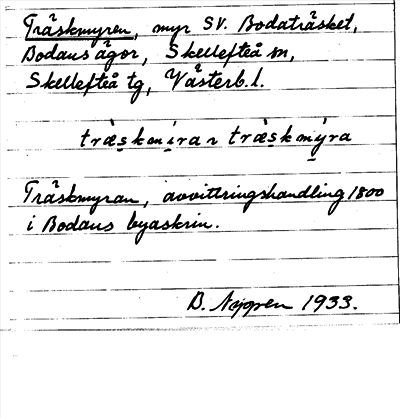 Träskmyren, myr SV. Bodaträsket,
Bodans ägor, Skellefteå sn,
Skellefteå tg, Västerb. l.
Träskmyran, avvittringshandling 1800
i Bodans byaskrin.
B. 1933.